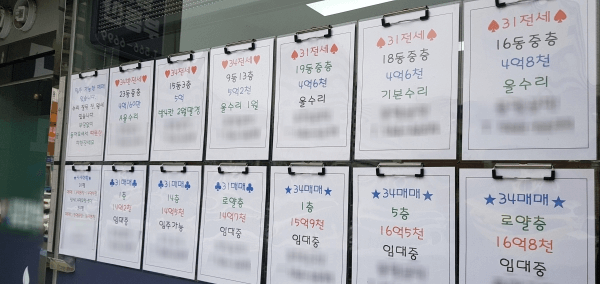 ♥34반전세♥
23동중층
4억/60만
올수리
♥34전세♥
15동3층
5억
♥34전세♥
9동13층
5억2천
올수리 1월
♠31전세♠
19동중층
4억6천
올수리
♠31전세♠
18동중층
4억6천
기본수리
♠31전세♠
16동중층
4억8천
올수리
♣31매매♣
1층
14억2천
임대중
♣31매매♣
14층
14억5천
입주가능
♣31매매♣
로얄층
14억7천
임대중
★34매매★
1층
15억9천
임대중
★34매매★
5층
16억5천
임대중
★34매매★
로얄층
16억8천
임대중